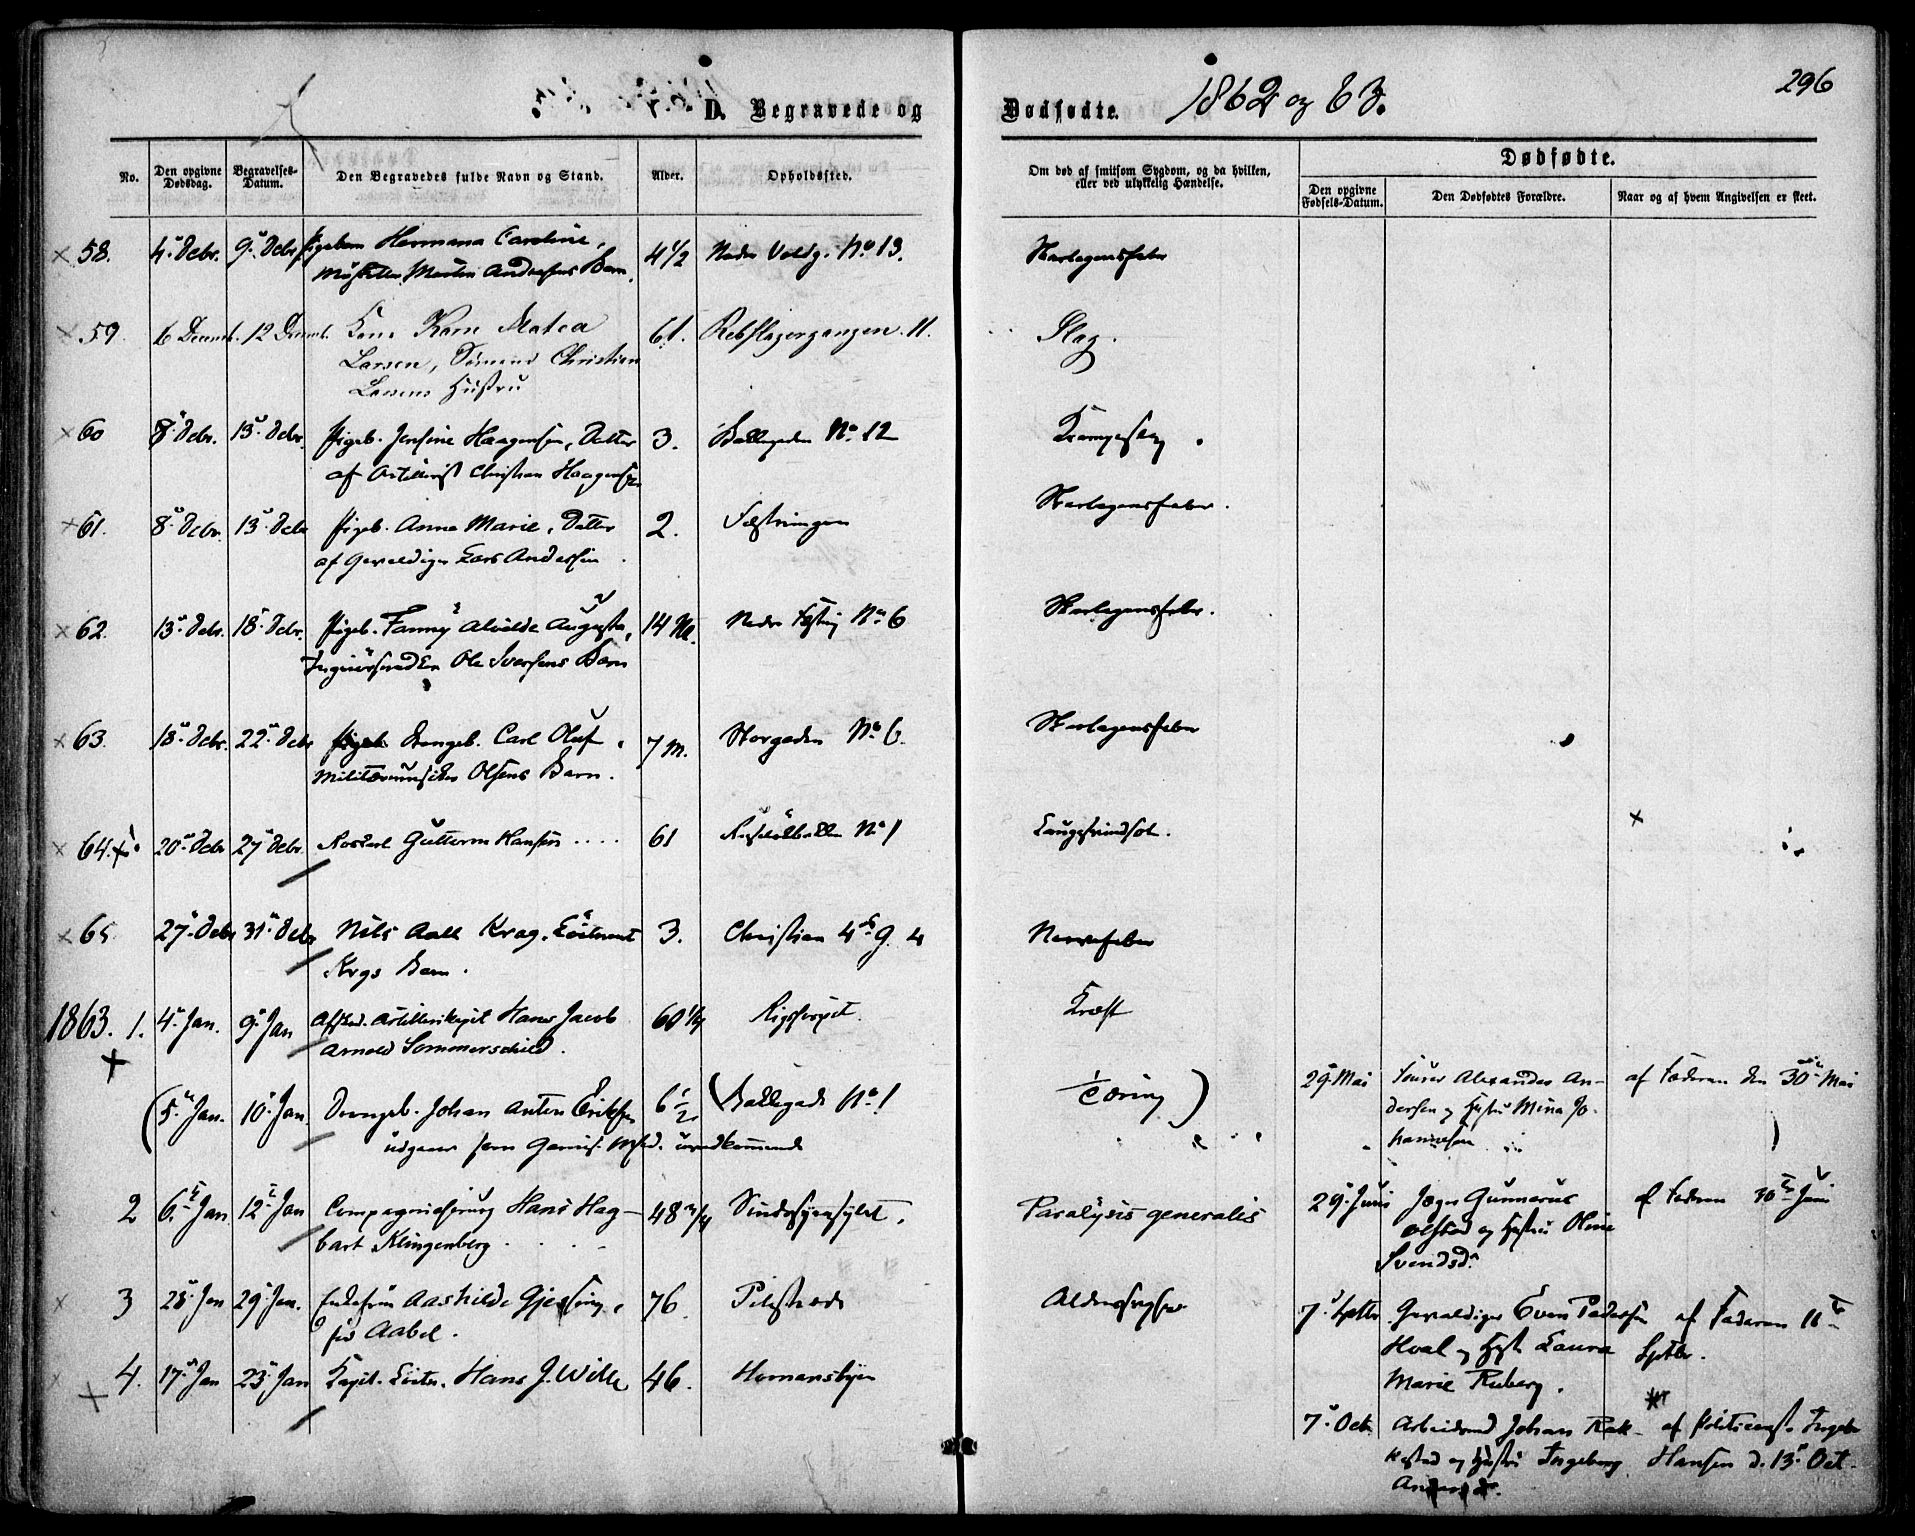 296
D. Begravede og Dødfødte. 1862 og 63.
No.
Den opgivne Dødsdag.
Begravelses-Datum.
Den Begravedes fulde Navn og Stand.
Alder.
Opholdssted.
Om død af smitsom Sygdom, og da hvilken, eller ved ulykkelig Hændelse.
Dødfødte.
Den opgivne Fødsels-Datum.
Den Dødfødtes Forældre.
Naar og af hvem Angivelsen er skeet.
58. 4. Debr. 9. Debr. Pigebarn Hermana Caroline, 4 1/2 Nedre Voldg. No 13. Skarlagensfeber
Martin Andersens Barn.
59 6 Decemb. 12 Decemb. Kone Karen Matea 61. Rebslagergangen. 11. Slag.
Larsen, Sømand Christian
Larsens Hustru
60 8. Debr. 13. Debr. Pigeb. Jensine Haagensen, Datter 3. Bakkegaden No. 12 Krampeslag
af Artillerist Christian Haagensen
61. 8. Debr. 13. Debr Pigeb. Anna Marie, Datter 2. Fæstningen Skarlagensfeber.
af Gevaldiger Lars Andersen
62. 13. Debr. 18. Debr. Pigeb. Fanny Alvilde Augusta, 14 M. Nedre Fæstn. No 6 Skarlagensfeber.
Ole Iversens Barn
63. 18. Debr. 22. Debr Drengeb. Carl Oluf, 7 M. Storgaden No 6. Skarlagensfeber
Militærmusiker Olsens Barn.
64. 20. Debr 27 Debr. Guttorm Hansen .... 61 No 1
65. 27. Debr 31. Debr Nils Aall Krag. Løitnant 3. Christian 4des G. 4 Nervefeber
Krags Barn.
1863. 1. 4. Jan. 9. Jan Afsked. Artillerikapt Hans Jacob 60 1/4 Rigshospit. Kræft
Arnold Sommerschild.
(5. Jan. 10. Jan. Drengeb. Johan Anton Eriksen 6 1/2 (Bakkegade No 1 Tæring )
udgaaer som Garnis. Mghd. uvedkommende
29. Mai Alexander An-
dersen og Hustru Mina Jo-
hannesen
af Faderen den 30 Mai
2 6. Jan 12 Jan Compagnichirurg Hans Hag- 48 3/4 Sindssygeasylet. Paralysis generalis
bart Klingenberg
29. Juni Jæger Gunnerus
Olstad og Hustru Oline
Svendsd.
af Faderen 30 Juni
3 28. Jan 29. Jan. Enkefru Aashilde Gjessing, 76. Pilestræde Alderssvaghed
fød Aabel.
7. Septbr Gevaldiger Even Pedersen
Hval og Hust. Laura
Marie Ruberg.
af Faderen 11
Sptbr.
4. 17. Jan 23. Jan Kapit. Løitn. Hans J. Wille 46. Homansbyen
7. Oct. Arbeidsmd Johan Rak-
kestad og Hustru Ingeborg
Andersd.
af Politiconst. Ingebr
Hansen d. 13. Oct.